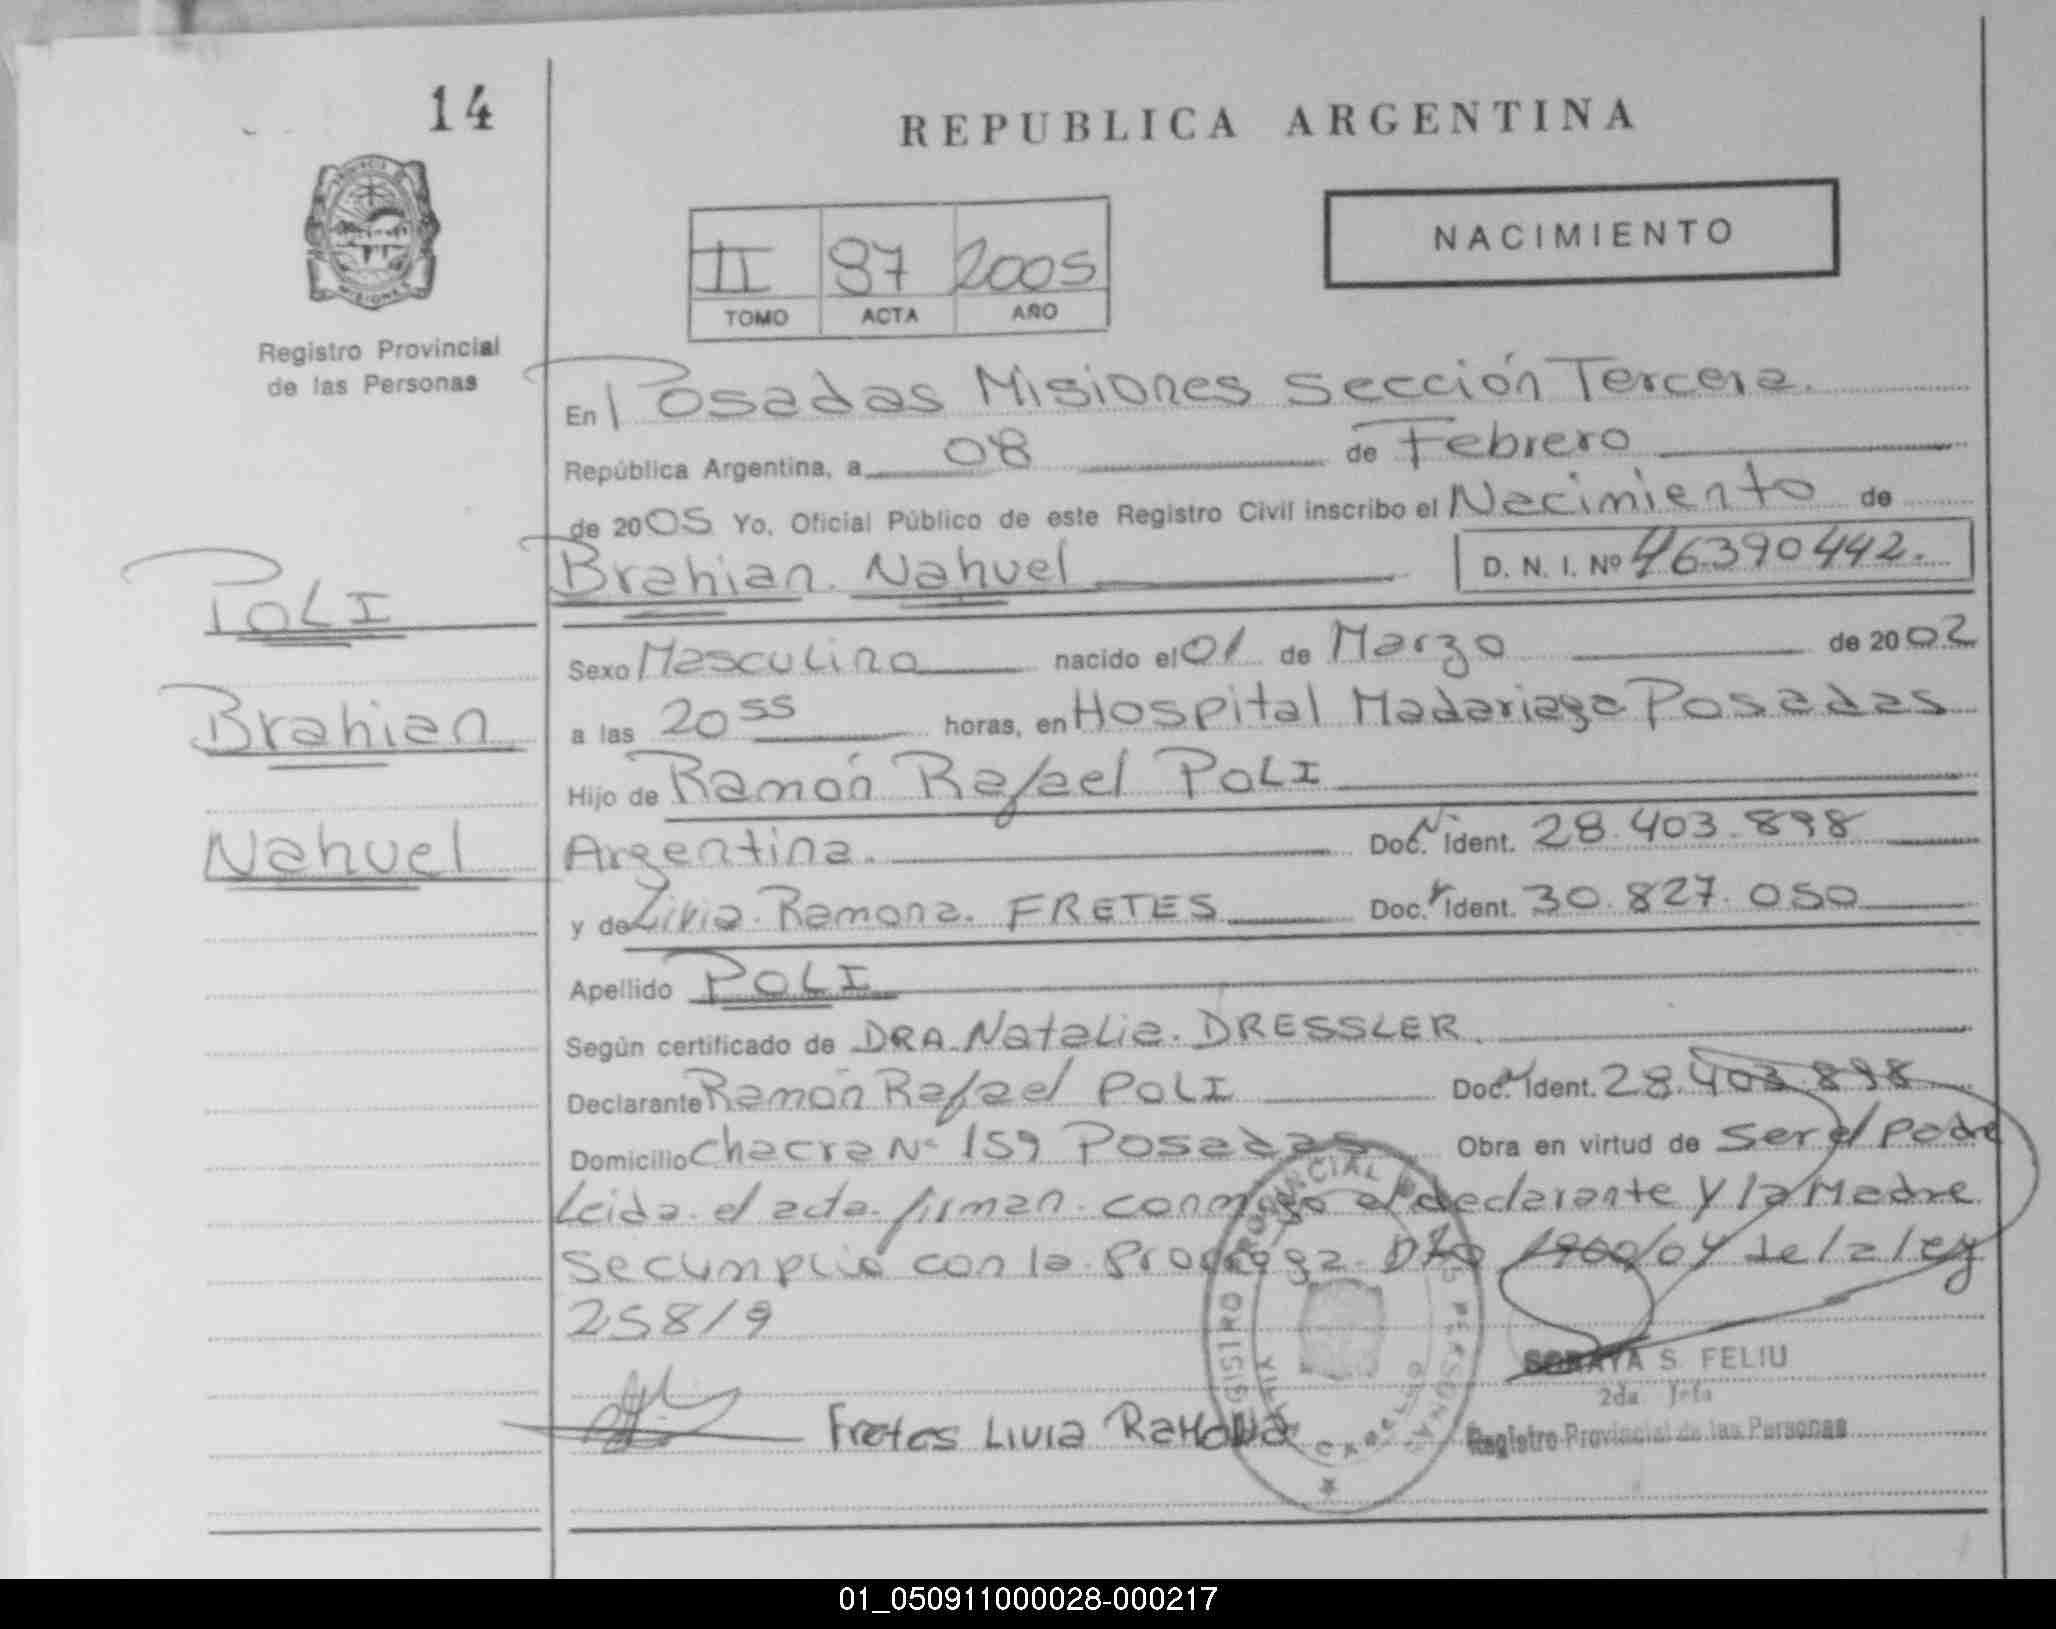 14
REPUBLICA ARGENTINA
PROVINCIA DE
MISIONES
Registro Provincial
de las Personas
NACIMIENTO
II 97 2005
TOMO ACTA AÑO
En Posadas Misiones Sección Tercera.
República Argentina, a 08 de Febrero
de 2005 Yo, Oficial Público de este Registro Civil inscribo el Nacimiento de
Brahian Nahuel D. N. I. Nº 46390442.
POLI
Brahian
Nahuel
Sexo Masculino nacido el 01 de Marzo de 2002
a las 20 55 horas, en Hospital Madariaga Posadas
Hijo de Ramón Rafael POLI
Argentina. Doc. Ident. 28.403.898
y de Livia Ramona. FRETES Doc. Ident. 30.827.050
Apellido POLI
Según certificado de DRA. Natalia. DRESSLER.
Declarante Ramón Rafael POLI Doc. Ident. 28.403.898
Domicilio Chacra Nº 159 Posadas Obra en virtud de ser el padre
Leida el acta firman conmigo el declarante y la Madre
se cumplió con la prorroga Dto 1900/04 de la ley
258/9
Fretes Livia RaMoNa
REGISTRO PROVINCIAL DE LAS PERSONAS
SORAYA S. FELIU
2da. Jefa
Registro Provincial de las Personas
01_050911000028-000217